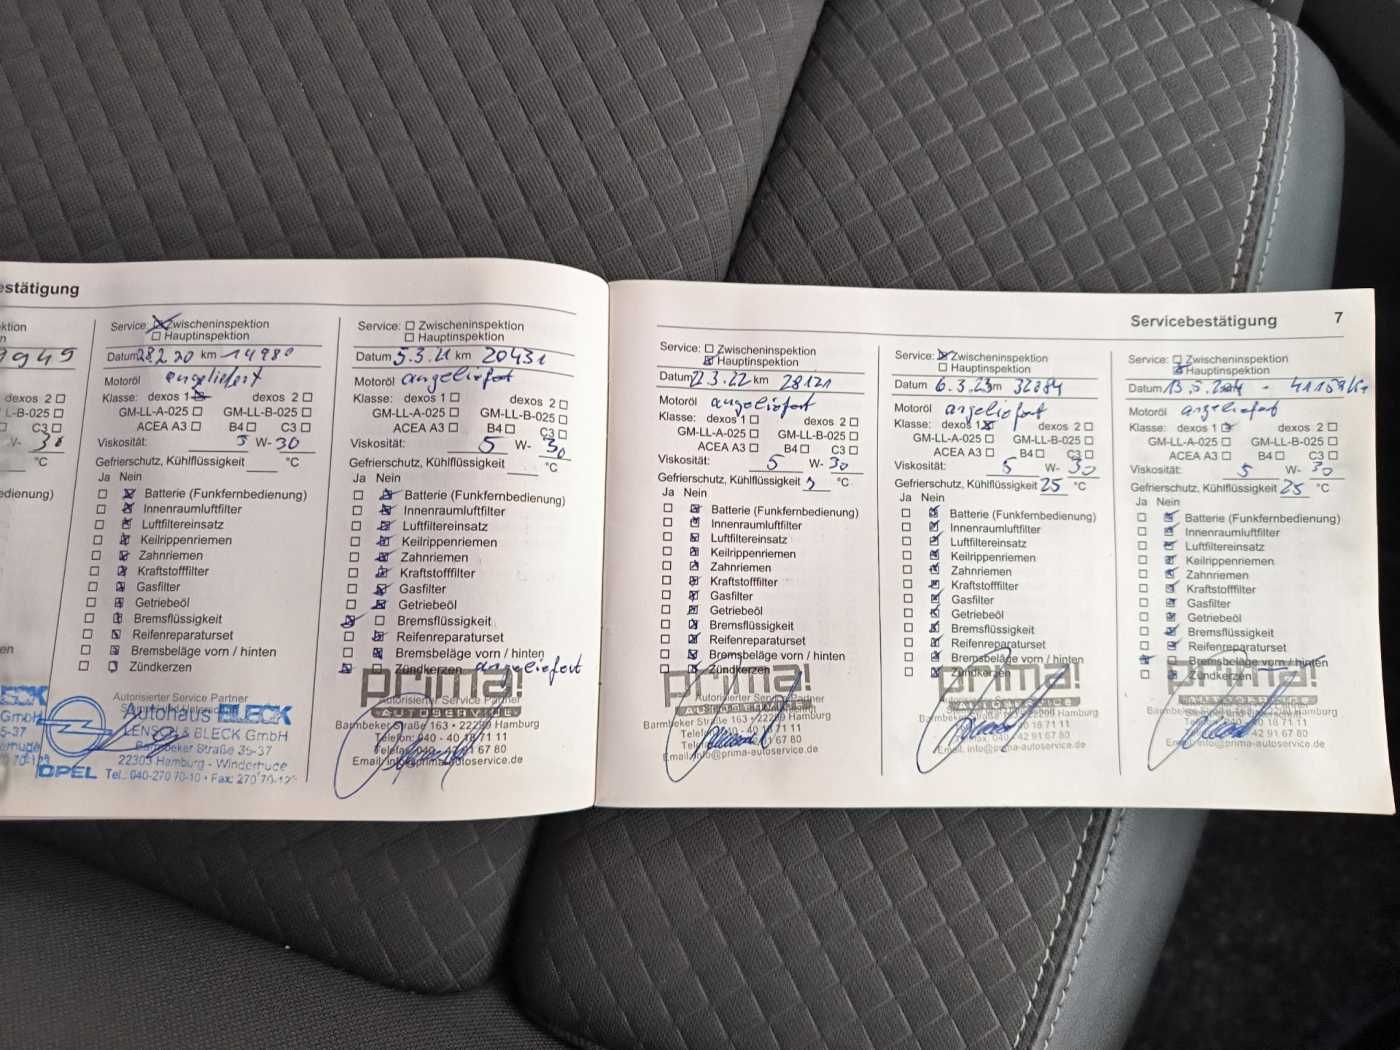 estätigung
ektion
9949
dexos 2
LL-B-025
C3
W- 30
°C
edienung)
Service: Zwischeninspektion
Hauptinspektion
Datum 28.2.20 km 14980
Motoröl angeliefert
Klasse: dexos 1 dexos 2
GM-LL-A-025 GM-LL-B-025
ACEA A3 B4 C3
Viskosität: 5 W- 30
Gefrierschutz, Kühlflüssigkeit °C
Ja Nein
Batterie (Funkfernbedienung)
Innenraumluftfilter
Luftfiltereinsatz
Keilrippenriemen
Zahnriemen
Kraftstofffilter
Gasfilter
Getriebeöl
Bremsflüssigkeit
Reifenreparaturset
Bremsbeläge vorn / hinten
Zündkerzen
Autorisierter Service Partner
Autohaus BLECK
LENSCH & BLECK GmbH
Barmbeker Straße 35-37
22303 Hamburg - Winterhude
OPEL Tel.: 040-270 70-10 • Fax: 270 70-129
Service: Zwischeninspektion
Hauptinspektion
Datum 5.3.21 km 20431
Motoröl angeliefert
Klasse: dexos 1 dexos 2
GM-LL-A-025 GM-LL-B-025
ACEA A3 B4 C3
Viskosität: 5 W- 30
Gefrierschutz, Kühlflüssigkeit °C
Ja Nein
Batterie (Funkfernbedienung)
Innenraumluftfilter
Luftfiltereinsatz
Keilrippenriemen
Zahnriemen
Kraftstofffilter
Gasfilter
Getriebeöl
Bremsflüssigkeit
Reifenreparaturset
Bremsbeläge vorn / hinten
Zündkerzen angeliefert
prima!
Autorisierter Service Partner
AUTOSERVICE
Barmbeker Straße 163 • 22299 Hamburg
Telefon: 040 - 40 18 71 11
Telefax: 040 - 42 91 67 80
Email: info@prima-autoservice.de
Servicebestätigung 7
Service: Zwischeninspektion
Hauptinspektion
Datum 22.3.22 km 28121
Motoröl angeliefert
Klasse: dexos 1 dexos 2
GM-LL-A-025 GM-LL-B-025
ACEA A3 B4 C3
Viskosität: 5 W- 30
Gefrierschutz, Kühlflüssigkeit °C
Ja Nein
Batterie (Funkfernbedienung)
Innenraumluftfilter
Luftfiltereinsatz
Keilrippenriemen
Zahnriemen
Kraftstofffilter
Gasfilter
Getriebeöl
Bremsflüssigkeit
Reifenreparaturset
Bremsbeläge vorn / hinten
Zündkerzen
prima!
Autorisierter Service Partner
Barmbeker Straße 163 • 22299 Hamburg
18 71 11
91 67 80
Email: info@prima-autoservice.de
Service: Zwischeninspektion
Hauptinspektion
Datum 6.3.23 km 32884
Motoröl angeliefert
Klasse: dexos 1 dexos 2
GM-LL-A-025 GM-LL-B-025
ACEA A3 B4 C3
Viskosität: 5 W- 30
Gefrierschutz, Kühlflüssigkeit 25 °C
Ja Nein
Batterie (Funkfernbedienung)
Innenraumluftfilter
Luftfiltereinsatz
Keilrippenriemen
Zahnriemen
Kraftstofffilter
Gasfilter
Getriebeöl
Bremsflüssigkeit
Reifenreparaturset
Bremsbeläge vorn / hinten
Zündkerzen
prima!
22299 Hamburg
40 18 71 11
42 91 67 80
info@prima-autoservice.de
Service: Zwischeninspektion
Hauptinspektion
Datum 13.5.2024 - 41159 km
Motoröl angeliefert
Klasse: dexos 1 dexos 2
GM-LL-A-025 GM-LL-B-025
ACEA A3 B4 C3
Viskosität: 5 W- 30
Gefrierschutz, Kühlflüssigkeit 25 °C
Ja Nein
Batterie (Funkfernbedienung)
Innenraumluftfilter
Luftfiltereinsatz
Keilrippenriemen
Zahnriemen
Kraftstofffilter
Gasfilter
Getriebeöl
Bremsflüssigkeit
Reifenreparaturset
Bremsbeläge vorn / hinten
Zündkerzen
prima!
Hamburg
18 71 11
42 91 67 80
info@prima-autoservice.de